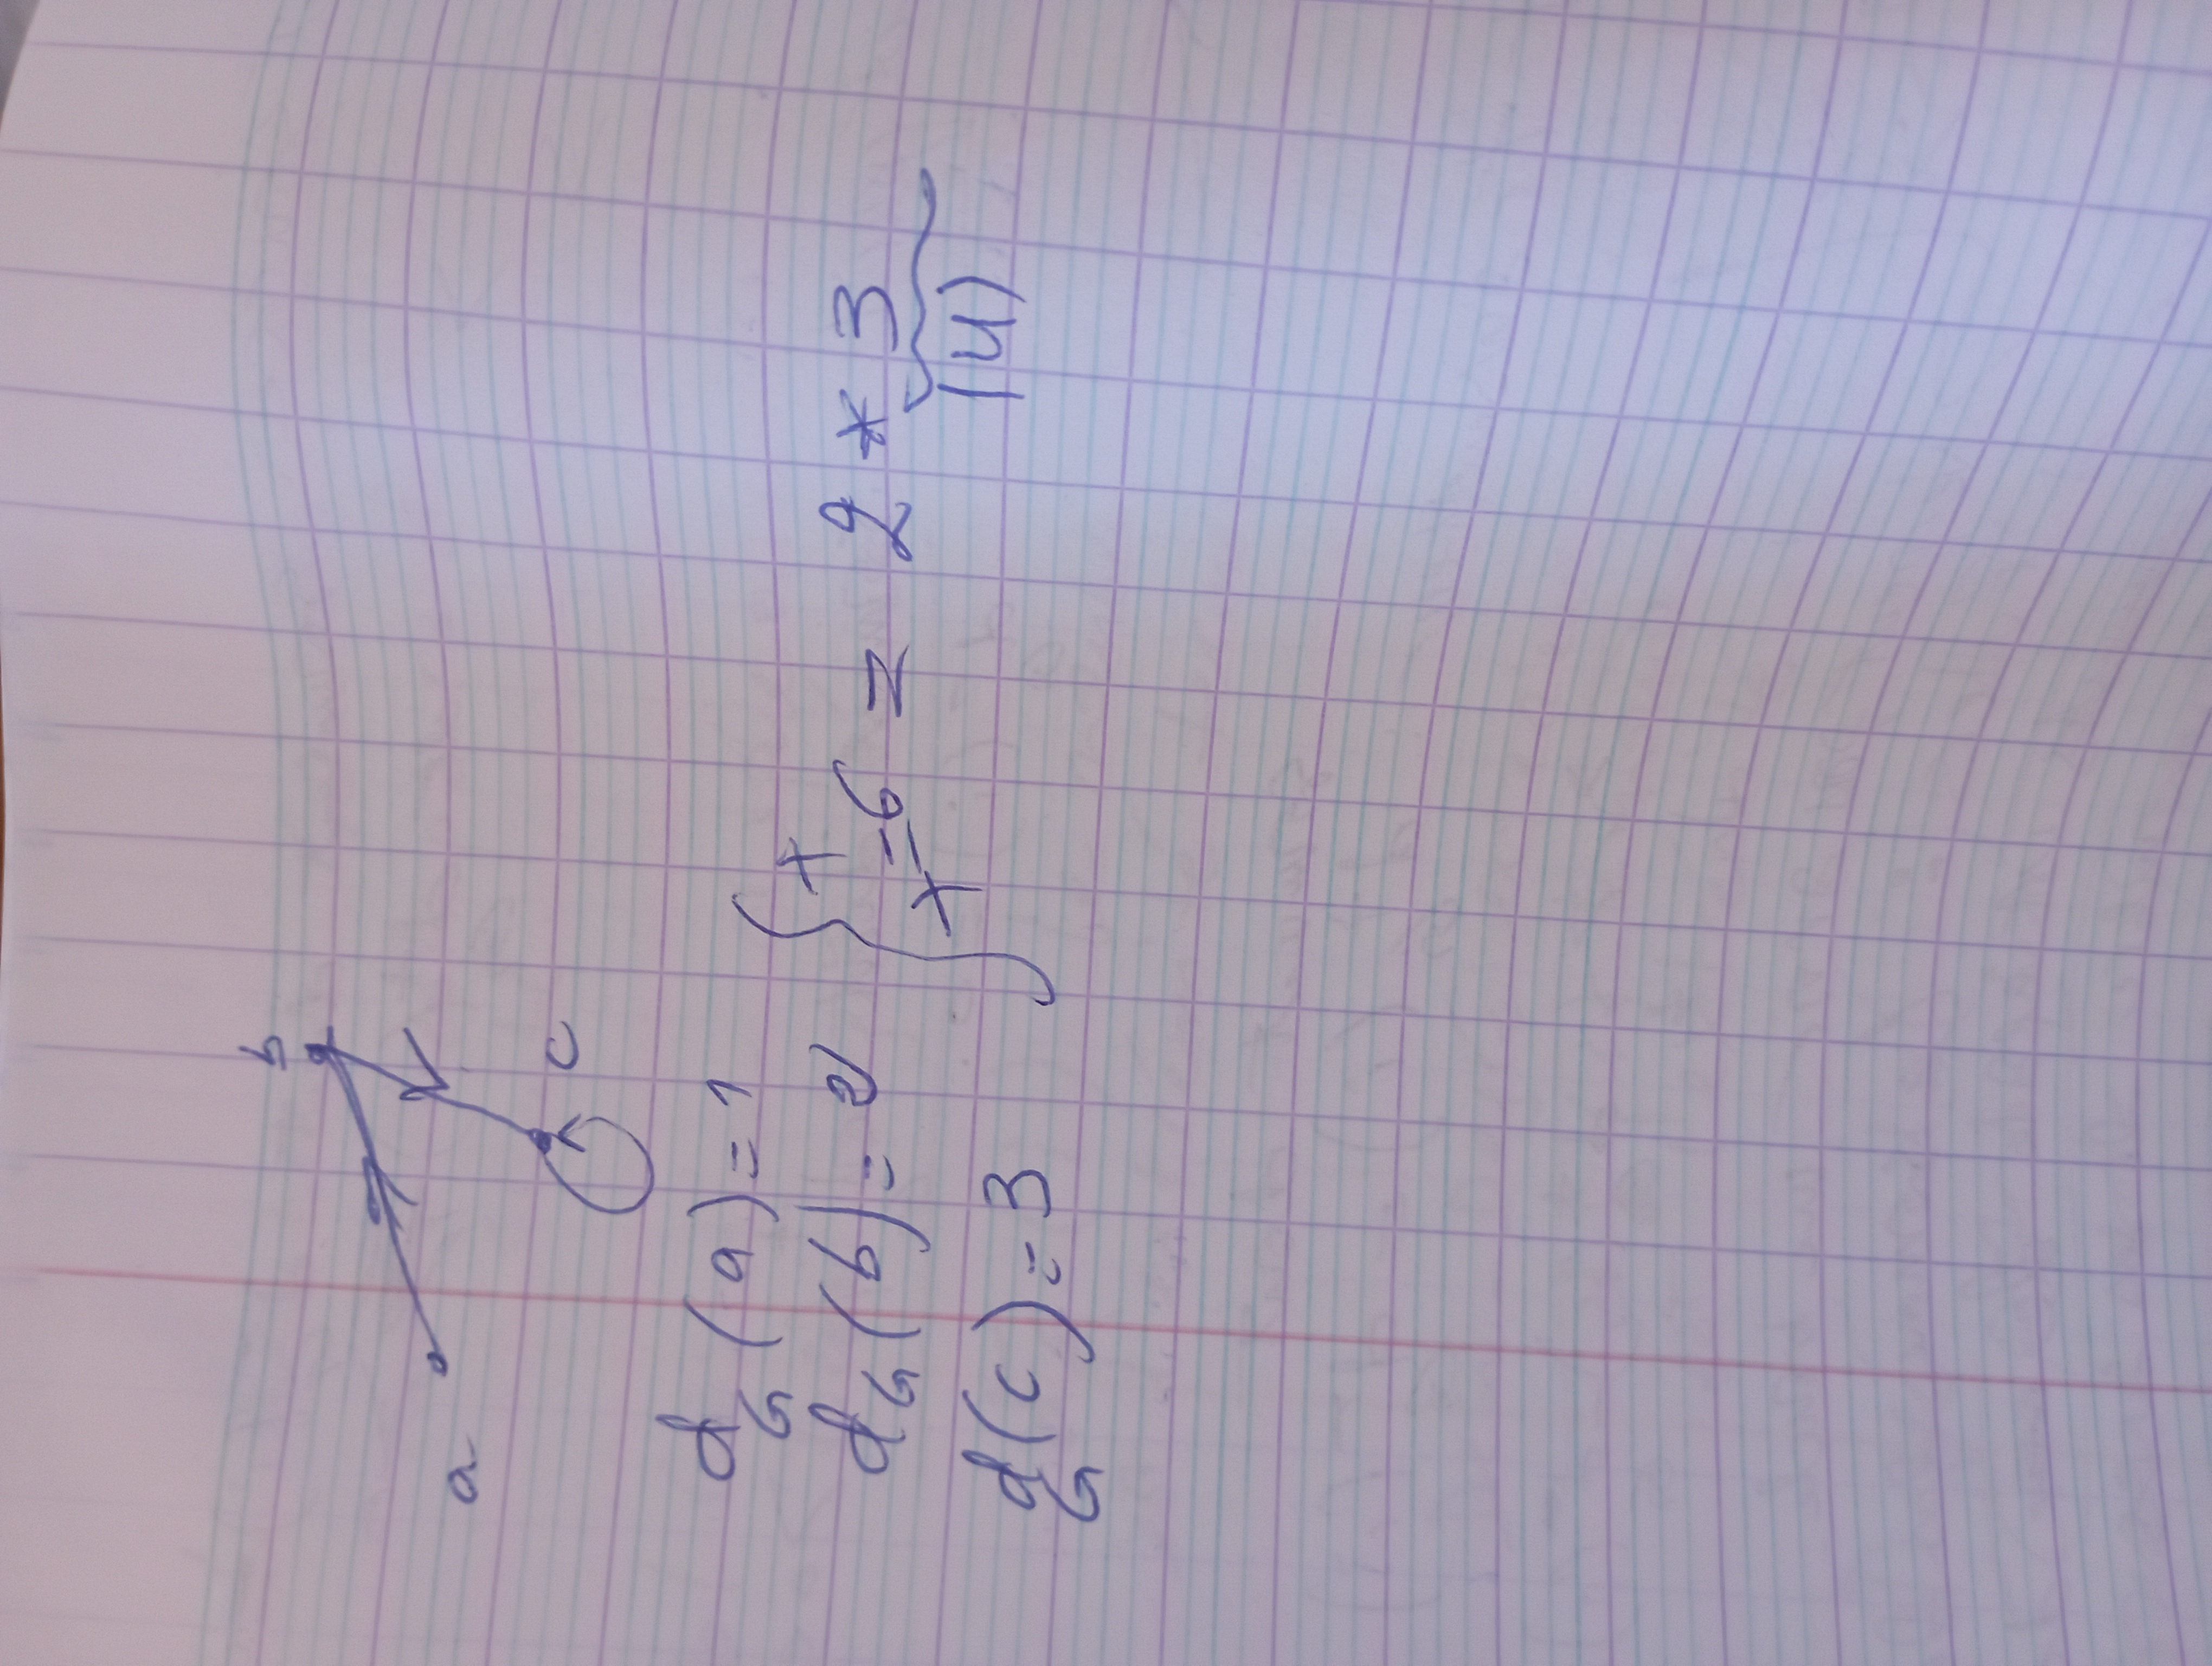 b
a
c
d_G(a) = 1
d_G(b) = 2
d_G(c) = 3
+
+
= 6 = 2 * 3
|U|